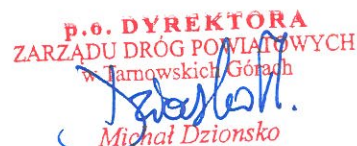 p.o. DYREKTORA
ZARZĄDU DRÓG POWIATOWYCH
w Tarnowskich Górach
Michał Dzionsko